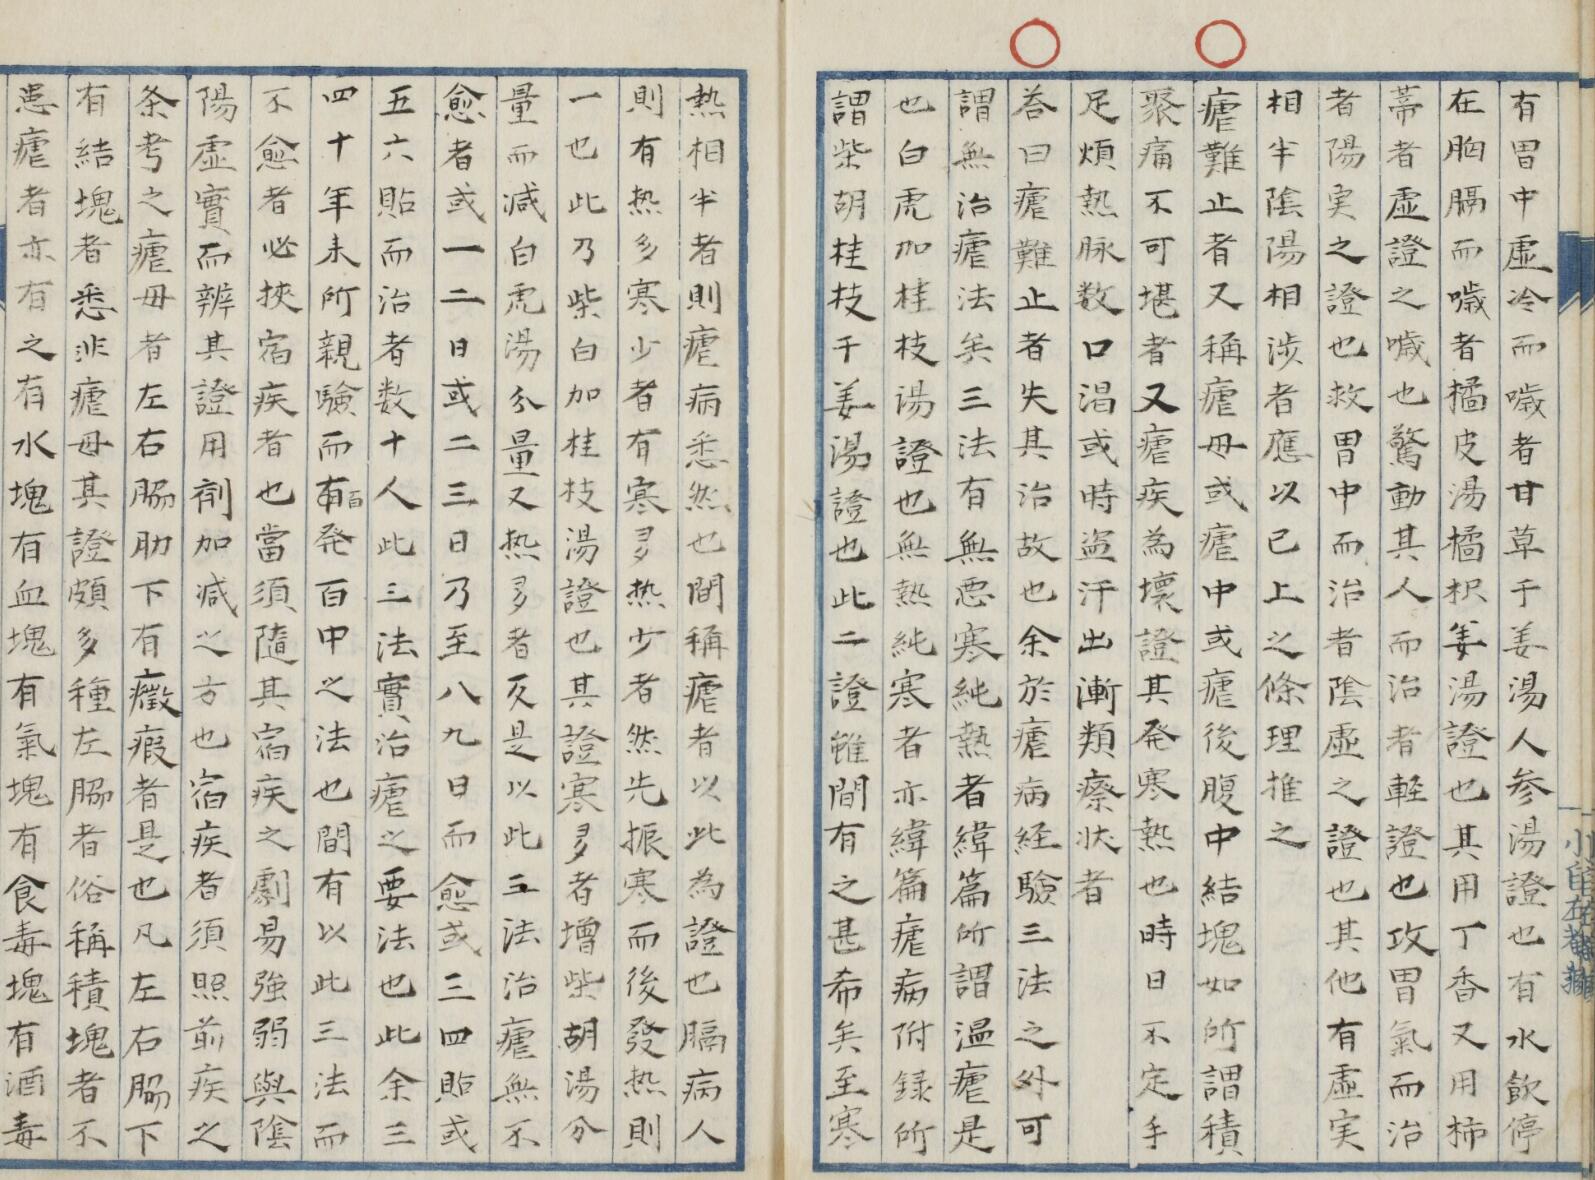 有胃中虛冷而噦者甘草干姜湯人参湯證也有水飲停
在胸膈而噦者橘皮湯橘枳姜湯證也其用丁香又用柿
蒂者虛證之噦也驚動其人而治者軽證也攻胃氣而治
者陽実之證也救胃中而治者陰虛之證也其他有虛実
相半陰陽相渉者應以已上之條理推之
瘧難止者又稱瘧母或瘧中或瘧後腹中結塊如所謂積
聚痛不可堪者又瘧疾為壞證其発寒熱也時日不定手
足煩熱脉数口渇或時盗汗出漸類瘵状者
答曰瘧難止者失其治故也余於瘧病経驗三法之外可
謂無治瘧法矣三法有無悪寒純熱者緯篇所謂温瘧是
也白虎加桂枝湯證也無熱純寒者亦緯篇瘧病附録所
謂柴胡桂枝干姜湯證也此二證雖間有之甚希矣至寒
熱相半者則瘧病悉然也間稱瘧者以此為證也膈病人
則有热多寒少者有寒多热少者然先振寒而後發热則
一也此乃柴白加桂枝湯證也其證寒多者増柴胡湯分
量而减白虎湯分量又热多者反是以此三法治瘧無不
愈者或一二日或二三日乃至八九日而愈或三四貼或
五六貼而治者数十人此三法實治瘧之要法也此余三
四十年来所親驗而有百発百中之法也間有以此三法而
不愈者必挾宿疾者也當須隨其宿疾之劇易強弱與陰
陽虛實而辨其證用剤加减之方也宿疾者須照前疾之
条考之瘧毋者左右脇肋下有癥瘕者是也凡左右脇下
有結塊者悉非瘧毋其證頗多種左脇者俗稱積塊者不
患瘧者亦有之有水塊有血塊有氣塊有食毒塊有酒毒